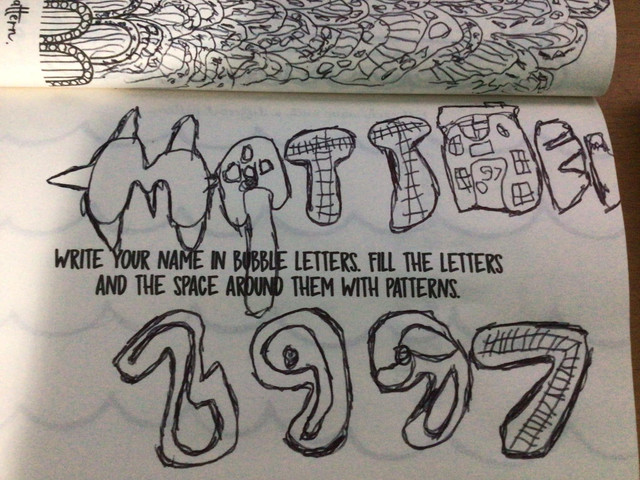 WRITE YOUR NAME IN BUBBLE LETTERS. FILL THE LETTERS
AND THE SPACE AROUND THEM WITH PATTERNS.
2997